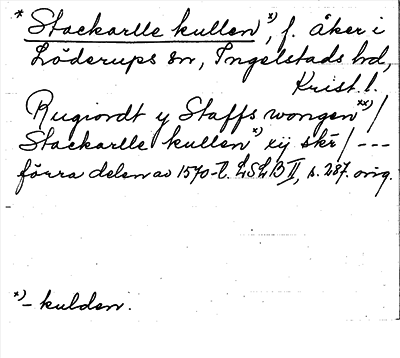 * Stackarlle kullen x), f. åker i
Löderups sn, Ingelstads hd,
Krist. l.
Rugiordt y Staffs wongen xx) /
Stackarlle kullen x) xij skr / ---
förra delen av 1570-t. LSLB II, s. 287. orig.
x) - kulden.